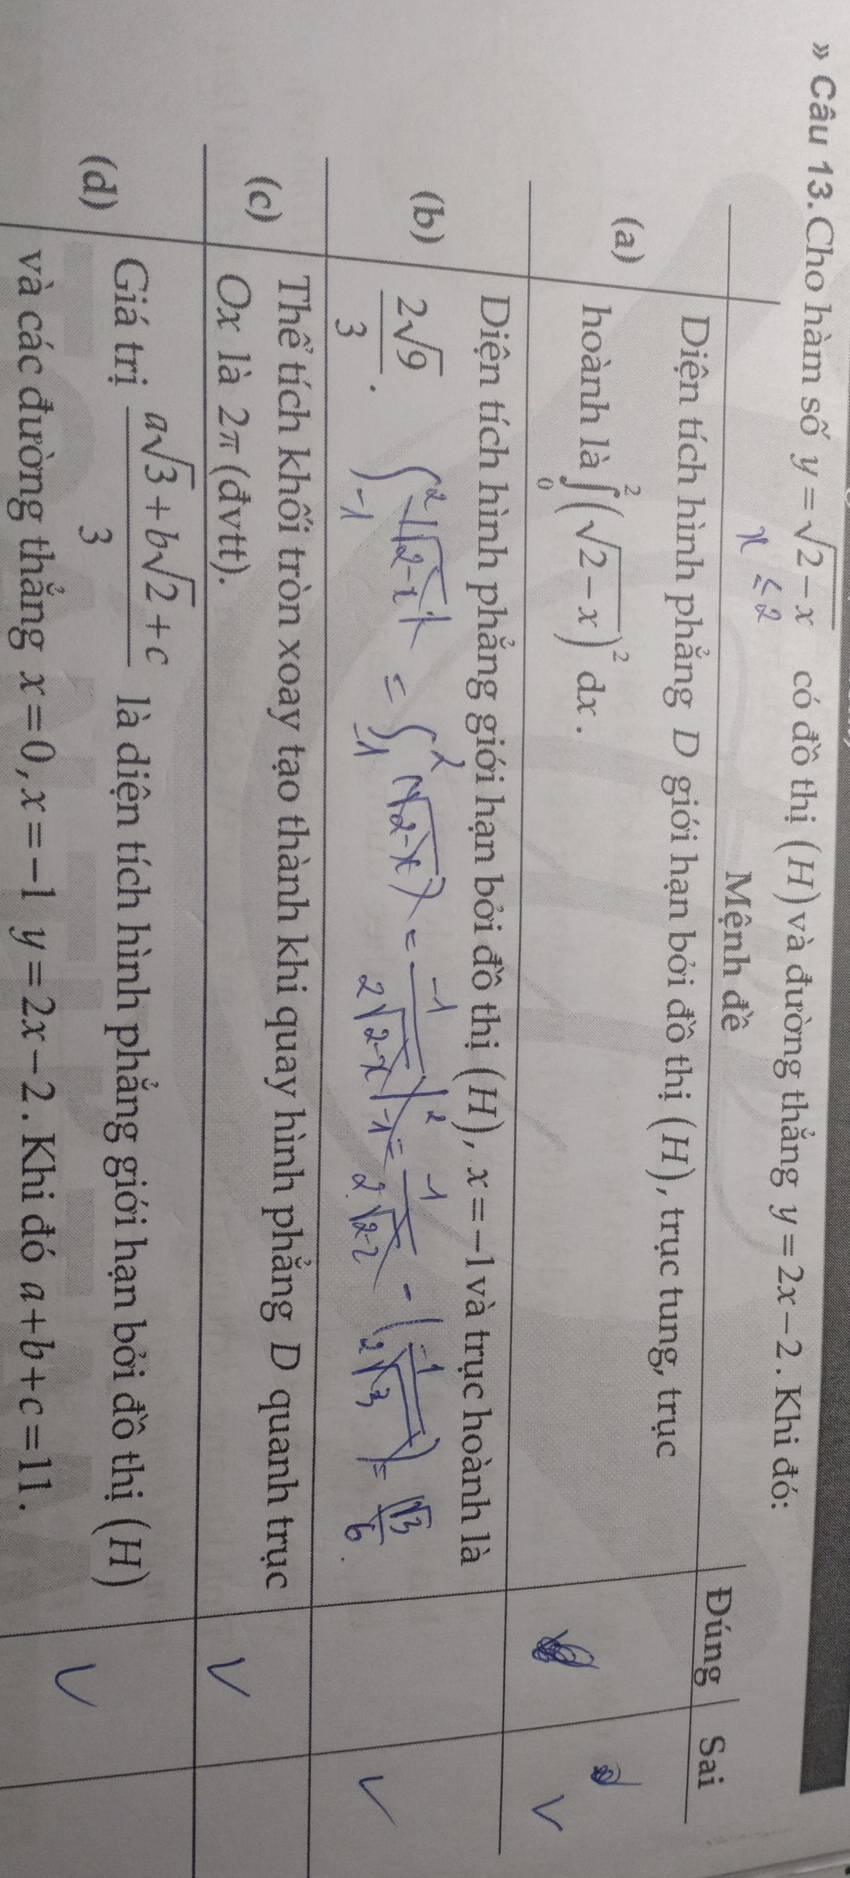 » Câu 13. Cho hàm số y = √(2 − x) có đồ thị (H) và đường thẳng y = 2x − 2. Khi đó:
x ≤ 2
Mệnh đề Đúng Sai
(a) Diện tích hình phẳng D giới hạn bởi đồ thị (H), trục tung, trục
hoành là ∫₀² (√(2 − x))² dx.
V
(b) Diện tích hình phẳng giới hạn bởi đồ thị (H), x = −1 và trục hoành là
2√9/3.
V
(c) Thể tích khối tròn xoay tạo thành khi quay hình phẳng D quanh trục
Ox là 2π (đvtt).
V
(d) Giá trị (a√3 + b√2 + c)/3 là diện tích hình phẳng giới hạn bởi đồ thị (H)
và các đường thẳng x = 0, x = −1 y = 2x − 2. Khi đó a + b + c = 11.
V